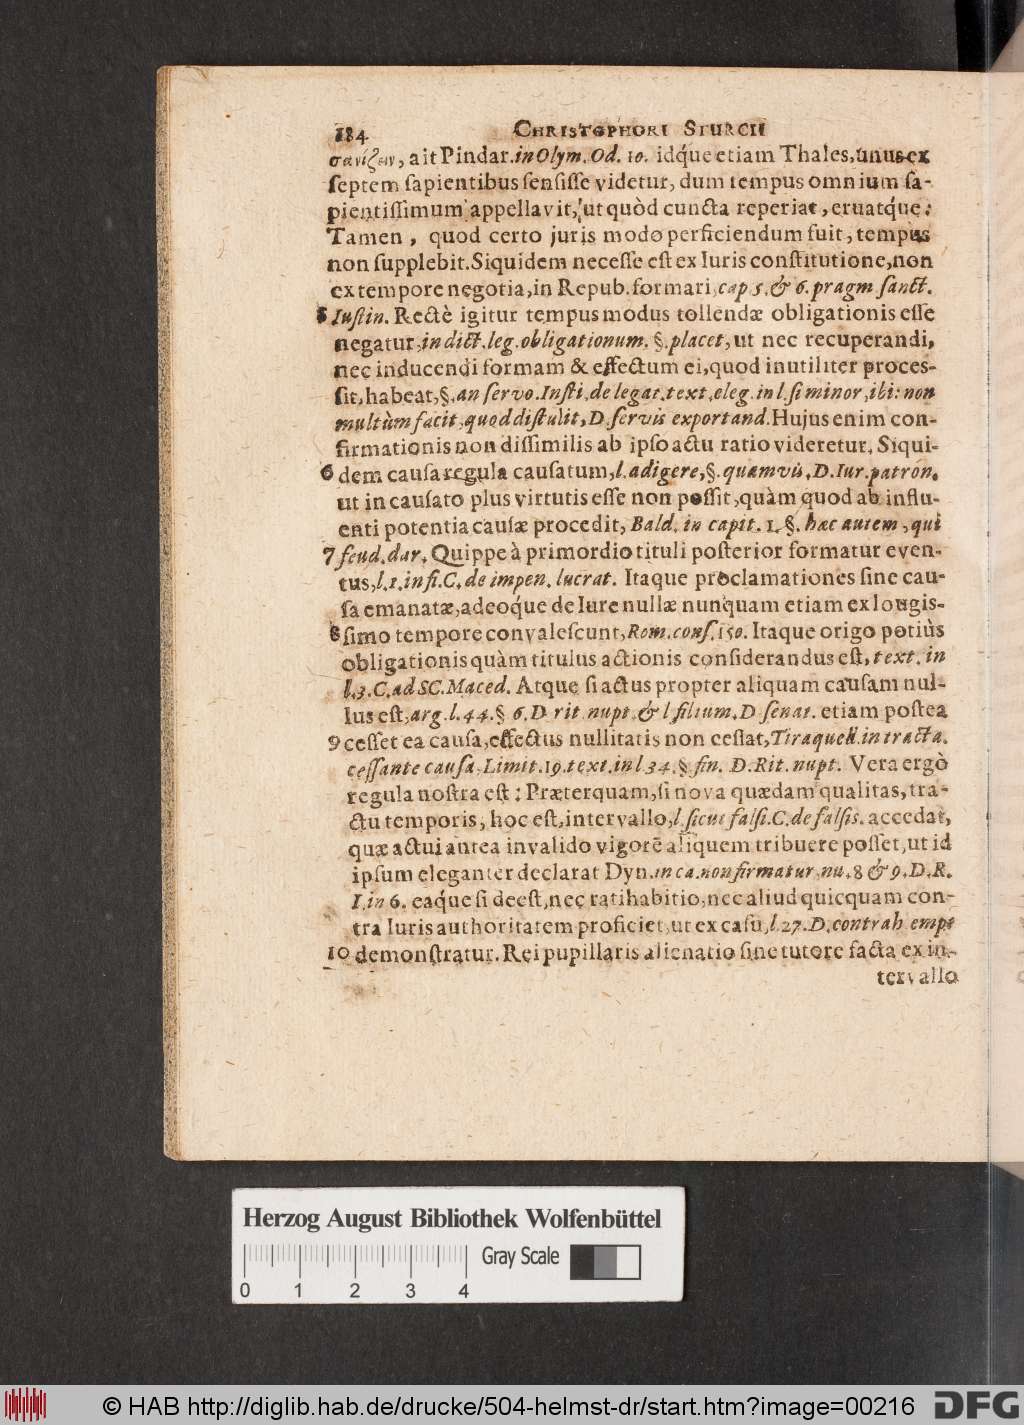 184 CHRISTOPHORI STURCII
σανίζειν, ait Pindar. in Olym. Od. 10. idq́ue etiam Thales, unus ex
ſeptem ſapientibus ſenſiſſe videtur, dum tempus omnium ſa-
pientiſſimum appellavit, ut quòd cuncta reperiat, eruatq́ue:
Tamen, quod certo juris modo perficiendum fuit, tempus
non ſupplebit. Siquidem neceſſe eſt ex Iuris conſtitutione, non
ex tempore negotia, in Repub. formari, cap 5. & 6. pragm ſanct.
5 Iuſtin. Rectè igitur tempus modus tollendæ obligationis eſſe
negatur, in dict. leg. obligationum. §. placet, ut nec recuperandi,
nec inducendi formam & effectum ei, quod inutiliter proceſ-
ſit, habeat, §. an ſervo. Inſti, de legat. text. eleg. in l. ſi minor, ibi: non
multùm facit, quod diſtulit, D. ſervis exportand. Hujus enim con-
firmationis non diſſimilis ab ipſo actu ratio videretur. Siqui-
6 dem cauſa regula cauſatum, l. adigere, §. quamvis. D. Iur. patron.
ut in cauſato plus virtutis eſſe non poſſit, quàm quod ab influ-
enti potentia cauſæ procedit, Bald. in capit. 1. §. hæc autem, qui
7 feud. dar. Quippe à primordio tituli poſterior formatur even-
tus, l. 1. in fi. C. de impen. lucrat. Itaque proclamationes ſine cau-
ſa emanatæ, adeoq́ue de Iure nullæ nunquam etiam ex longiſ-
8 ſimo tempore convaleſcunt, Rom. conſ. 150. Itaque origo potiùs
obligationis quàm titulus actionis conſiderandus eſt, text. in
l. 3. C. ad SC. Maced. Atque ſi actus propter aliquam cauſam nul-
lus eſt, arg. l. 44. § 6. D rit nupt & l filium. D ſenat. etiam poſtea
9 ceſſet ea cauſa, effectus nullitatis non ceſſat, Tiraquell. in tracta.
ceſſante cauſa, Limit. 19. text. in l 34. § fin. D. Rit. nupt. Vera ergò
regula noſtra eſt: Præterquam, ſi nova quædam qualitas, tra-
ctu temporis, hoc eſt, intervallo, l. ſicut falſi. C. de falſis. accedat,
quæ actui antea invalido vigorẽ aliquem tribuere poſſet, ut id
ipſum eleganter declarat Dyn. in ca. non firmatur nu. 8 & 9. D. R.
I. in 6. eaq́ue ſi deeſt, nec ratihabitio, nec aliud quicquam con-
tra Iuris authoritatem proficiet, ut ex caſu, l. 27. D. contrah empt
10 demonſtratur. Rei pupillaris alienatio ſine tutore facta ex in-
tervallo
Herzog August Bibliothek Wolfenbüttel
Gray Scale
0 1 2 3 4
© HAB http://diglib.hab.de/drucke/504-helmst-dr/start.htm?image=00216
DFG